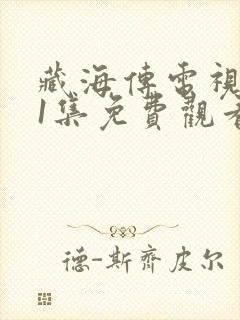 藏海傳電視
1集免費觀看
德-斯齊皮尔